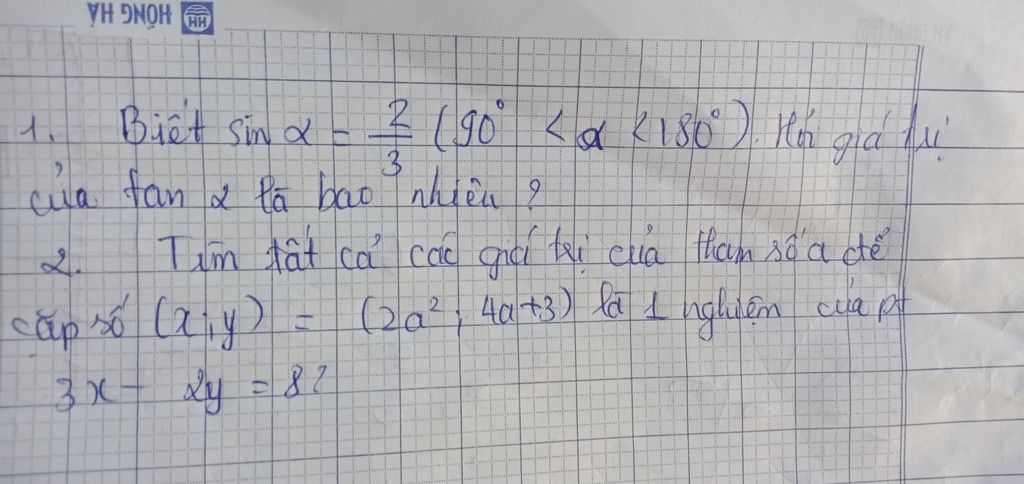 HỒNG HÀ HH
1. Biết sin α = 2/3 (90° < α < 180°). Hỏi giá trị
của tan α là bao nhiêu?
2. Tìm tất cả các giá trị của tham số a để
cặp số (x; y) = (2a²; 4a+3) là 1 nghiệm của pt
3x - 2y = 8?